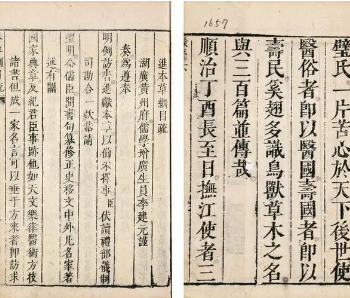 1657
璧氏一片苦心於天下後世使
醫俗者卽以醫國壽國者卽以
壽民奚翅多識鳥獸草木之名
與三百篇並傳哉
順治丁酉長至日撫江使者三
進本草綱目疏
湖廣黃州府儒學增廣生員李建元謹
奏爲遵奉
明例訪書進獻本草以備采擇事臣伏讀禮部儀制
司勘合一欵恭請
聖明敕儒臣開書局纂修正史移文中外凡名家著
述有關
國家典章及紀君臣事跡他如天文樂律醫術方技
諸書但成一家名言可以垂于方來者卽訪求